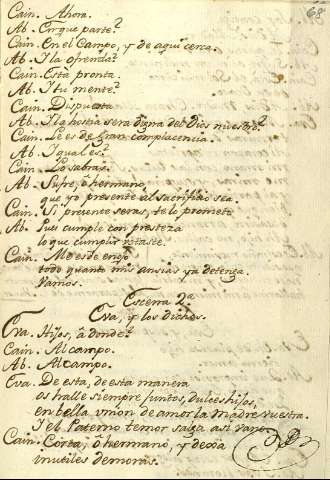 68
Cain. Ahora.
Ab. En que parte?
Cain. En el Campo, y de aqui cerca.
Ab. I la ofrenda?
Cain. Està pronta.
Ab. I tu mente?
Cain. Dispuesta
Ab. I la hostia sera digna del Dios nuestro?
Cain. Le es de gran complacencia.
Ab. I qual es?
Cain. Lo sabras.
Ab. Sufre, ò hermano,
que yo presente al sacrificio sea.
Cain. Si presente seras, te lo prometo
Ab. Pues cumple con presteza
lo que cumplir votaste.
Cain. Molesde enojo
todo quanto mis ansias ya detenga.
Vamos.
Escena 2ª
Eva, y los dichos.
Eva. Hijos, â donde?
Cain. Al campo.
Ab. Al campo.
Eva. De esta, de esta manera
os halle siempre juntos, dulces hijos,
en bella union de amor la madre vuestra.
I el Paterno temor salga asi vano.
Cain. Corta, ô hermano, y dexa
inutiles demoras.